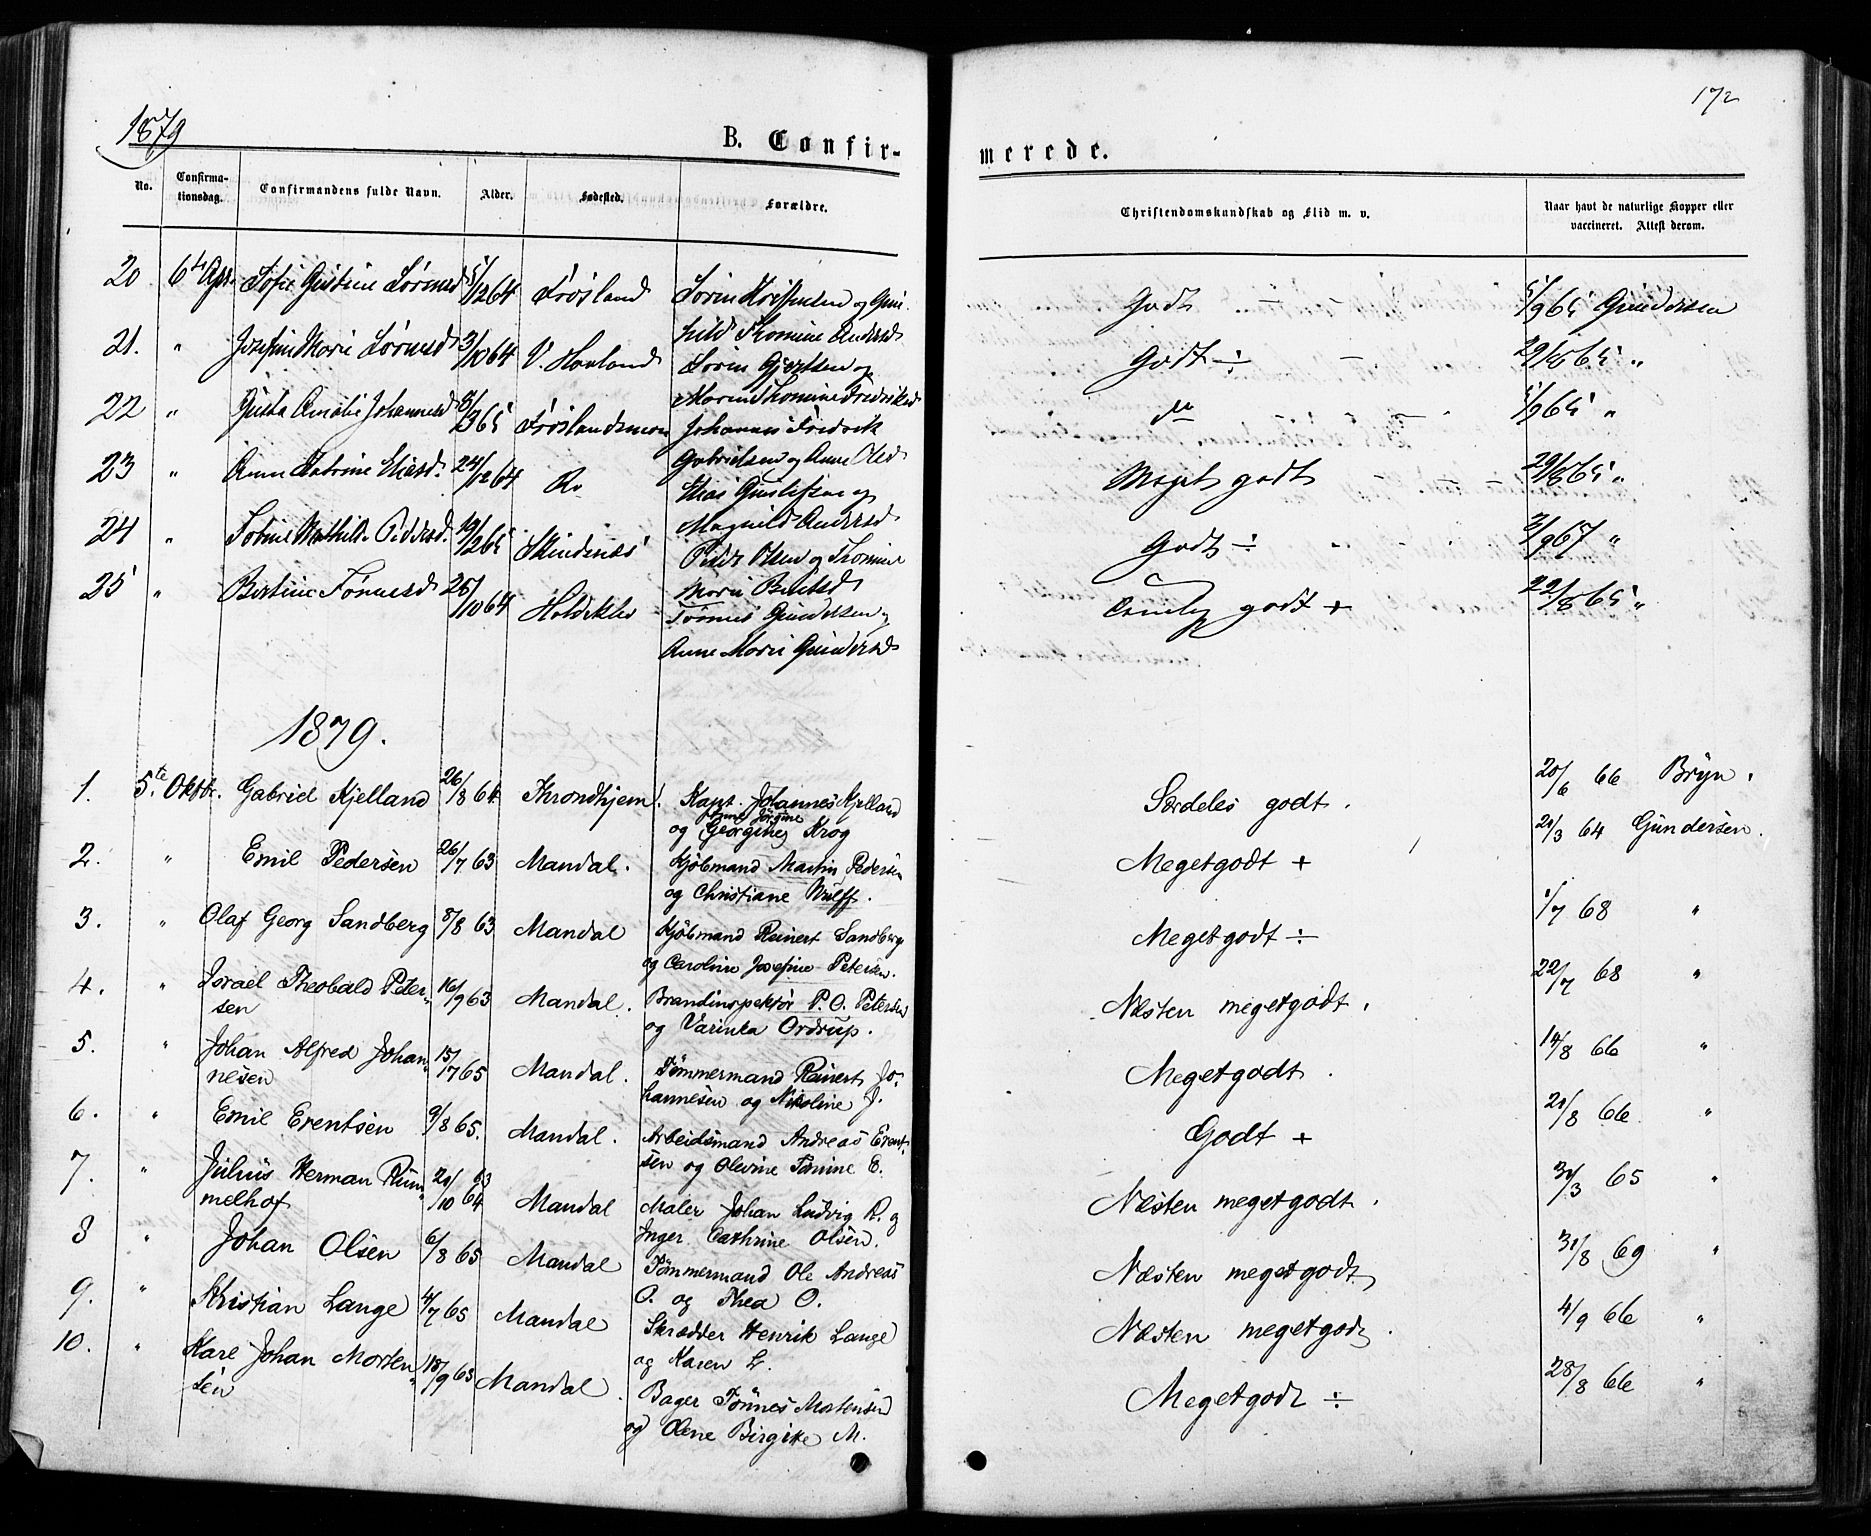 172
1879
B. Confir-
merede.
No. Confirma-tionsdag. Confirmandens fulde Navn. Alder. Fødested. Forældre. Christendomskundskab og Flid m. v. Naar havt de naturlige Kopper eller vaccineret. Attest derom.
20 6te Apr. Sofie Gustine Sørensd 5/12 64 Frøsland Sören Kristensen og Gun- Godt 5/9 65 Gundersen
hild Thomine Andersd
21. " Josefine Marie Sörensd 3/10 64 V. Havland Sören Gjertsen og Godt ÷ 29/8 65 "
Maren Thomine Fredriksd
22 " Gusta Amalie Johannesd 8/3 65 Frøslandsmoen Johannes Fredrik do 5/9 65 "
Gabrielsen og Anne Olsd
23 " Anne Katrine Eliasd. 24/12 64 Ro Elias Gunstefsen og Meget godt 29/8 65 "
Magnild Andersd
24 " Tobine Mathilde Pedersd. 19/2 65 Skinsnæs Peder Olsen og Thomine Godt ÷ 3/9 67 "
Marie Berntsd
25 " Bertine Tønnesd 26/10 64 Holdeklev Tønnes Gundersen og Temlig godt + 22/8 65 "
Anne Marie Gundersd
1879.
1. 5te Oktbr. Gabriel Kjelland 26/8 64 Throndhjem. Kapt. Johannes Kjelland Særdeles godt. 20/6 66 Bryn.
Jörgine
og Georgine Krog
2. " Emil Pedersen 26/7 63 Mandal. Kjöbmand Martin Pedersen Megetgodt + 21/3 64 Gundersen.
og Christiane Wulff.
3. " Olaf Georg Sandberg 8/8 63 Mandal Kjöbmand Reinert Sandberg Megetgodt ÷ 1/7 68 "
og Caroline Josefine Petersen.
4. " Israel Theobald Peter- 16/9 63 Mandal. Brandinspektör P. O. Petersen Næsten megetgodt. 22/7 68 "
sen og Varinka Ordrup.
5. " Johan Alfred Johan- 15/7 65 Mandal. Tömmermand Reinert Jo- Megetgodt. 14/8 66 "
nesen hannesen og Nikoline J.
6. " Emil Erentsen 9/8 65. Mandal. Arbeidsmand Andreas Erent- Godt + 21/8 66. "
sen og Olevine Tomine E.
7. " Julius Herman Rum- 20/10 64 Mandal Maler Johan Ludvig R. og Næsten megetgodt. 31/3 65 "
63
melhof Inger Cathrine Olsen.
8 " Johan Olsen 6/8 65 Mandal Tömmermand Ole Andreas Næsten megetgodt 31/8 69 "
O. og Thea O.
9. " Kristian Lange 4/7 65 Mandal Skrædder Henrik Lange Næsten megetgodt. 4/9 66 "
og Karen L.
10. " Karl Johan Morten- 18/9 63 Mandal. Bager Tönnes Mortensen Megetgodt ÷ 28/8 66 "
sen og Olene Birgitte M.